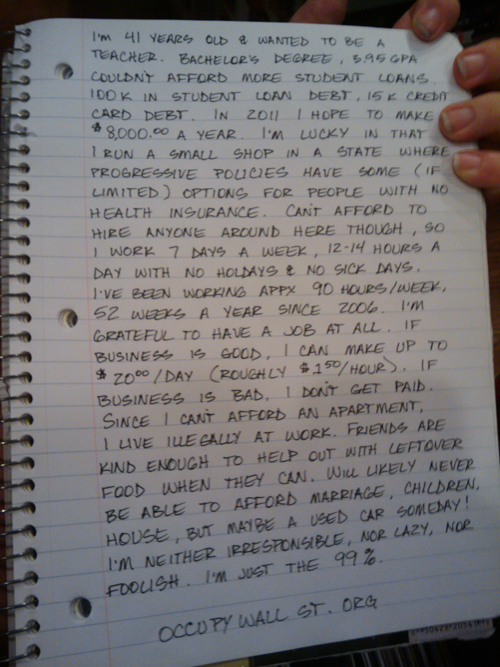 I'M 41 YEARS OLD & WANTED TO BE A
TEACHER. BACHELOR'S DEGREE, 3.95 GPA
COULDN'T AFFORD MORE STUDENT LOANS.
100 K IN STUDENT LOAN DEBT, 15 K CREDIT
CARD DEBT. IN 2011 I HOPE TO MAKE
$8,000.00 A YEAR. I'M LUCKY IN THAT
I RUN A SMALL SHOP IN A STATE WHERE
PROGRESSIVE POLICIES HAVE SOME (IF
LIMITED) OPTIONS FOR PEOPLE WITH NO
HEALTH INSURANCE. CAN'T AFFORD TO
HIRE ANYONE AROUND HERE THOUGH, SO
I WORK 7 DAYS A WEEK, 12-14 HOURS A
DAY WITH NO HOLDAYS & NO SICK DAYS.
I'VE BEEN WORKING APPX 90 HOURS/WEEK,
52 WEEKS A YEAR SINCE 2006. I'M
GRATEFUL TO HAVE A JOB AT ALL. IF
BUSINESS IS GOOD, I CAN MAKE UP TO
$20.00/DAY (ROUGHLY $1.50/HOUR). IF
BUSINESS IS BAD, I DON'T GET PAID.
SINCE I CAN'T AFFORD AN APARTMENT,
I LIVE ILLEGALLY AT WORK. FRIENDS ARE
KIND ENOUGH TO HELP OUT WITH LEFTOVER
FOOD WHEN THEY CAN. WILL LIKELY NEVER
BE ABLE TO AFFORD MARRIAGE, CHILDREN,
HOUSE, BUT MAYBE A USED CAR SOMEDAY!
I'M NEITHER IRRESPONSIBLE, NOR LAZY, NOR
FOOLISH. I'M JUST THE 99%.
OCCUPY WALL ST. ORG